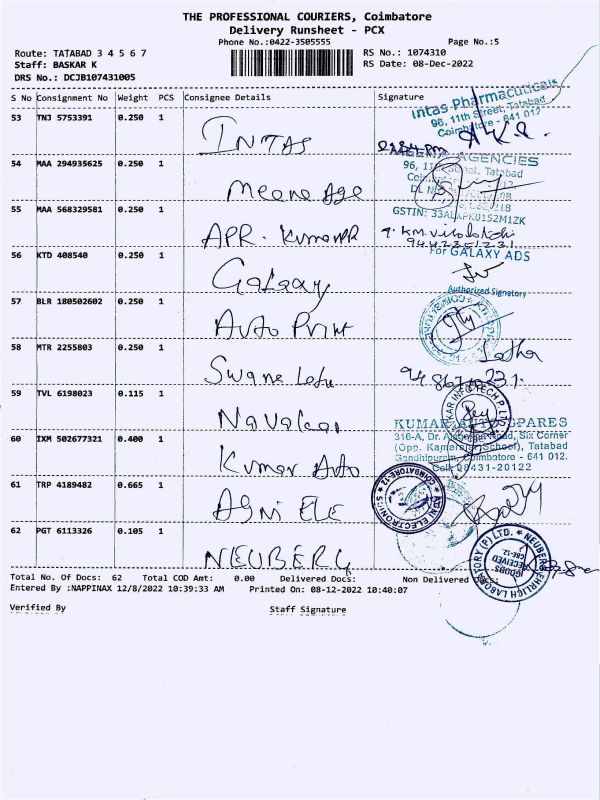 THE PROFESSIONAL COURIERS, Coimbatore
Delivery Runsheet - PCX
Phone No.:0422-3505555
Page No.:5
Route: TATABAD 3 4 5 6 7
RS No.: 1074310
Staff: BASKAR K
RS Date: 08-Dec-2022
DRS No.: DCJB107431005
S No Consignment No Weight PCS Consignee Details Signature
53 TNJ 5753391 0.250 1 INTAS
Intas Pharmaceuticals
98, 11th Street, Tatabad
Coimbatore - 641 012
54 MAA 294935625 0.250 1 Meena Age
MEENA AGENCIES
96, 11th Street, Tatabad
GSTIN:
55 MAA 568329581 0.250 1 APR. Kumar
56 KTD 408540 0.250 1 Galaxy
For GALAXY ADS
Authorized Signatory
57 BLR 180502602 0.250 1 Auto Print
58 MTR 2255803 0.250 1 Swane
Latha
59 TVL 6198023 0.115 1 Navakar
60 IXM 502677321 0.400 1 Kumar Auto
KUMAR AUTO SPARES
316-A, Dr. Road, Six Corner
(Opp. School), Tatabad
Gandhipuram, Coimbatore - 641 012.
Cell: 98431-20122
61 TRP 4189482 0.665 1 Agni Ele
AGNI ELECTRONICS
COIMBATORE-12
62 PGT 6113326 0.105 1 NEUBERG
NEUBERG EHRLICH LABORATORY (P) LTD.
GOODS
RECEIVED
CBE-12
Total No. Of Docs: 62 Total COD Amt: 0.00 Delivered Docs: Non Delivered Docs:
Entered By :NAPPINAX 12/8/2022 10:39:33 AM Printed On: 08-12-2022 10:40:07
Verified By Staff Signature